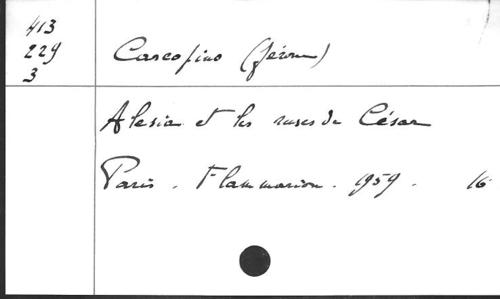 413
229
3
Carcopino (Jérome)
Alesia et les ruses de César
Paris. Flammarion. 1959. 16